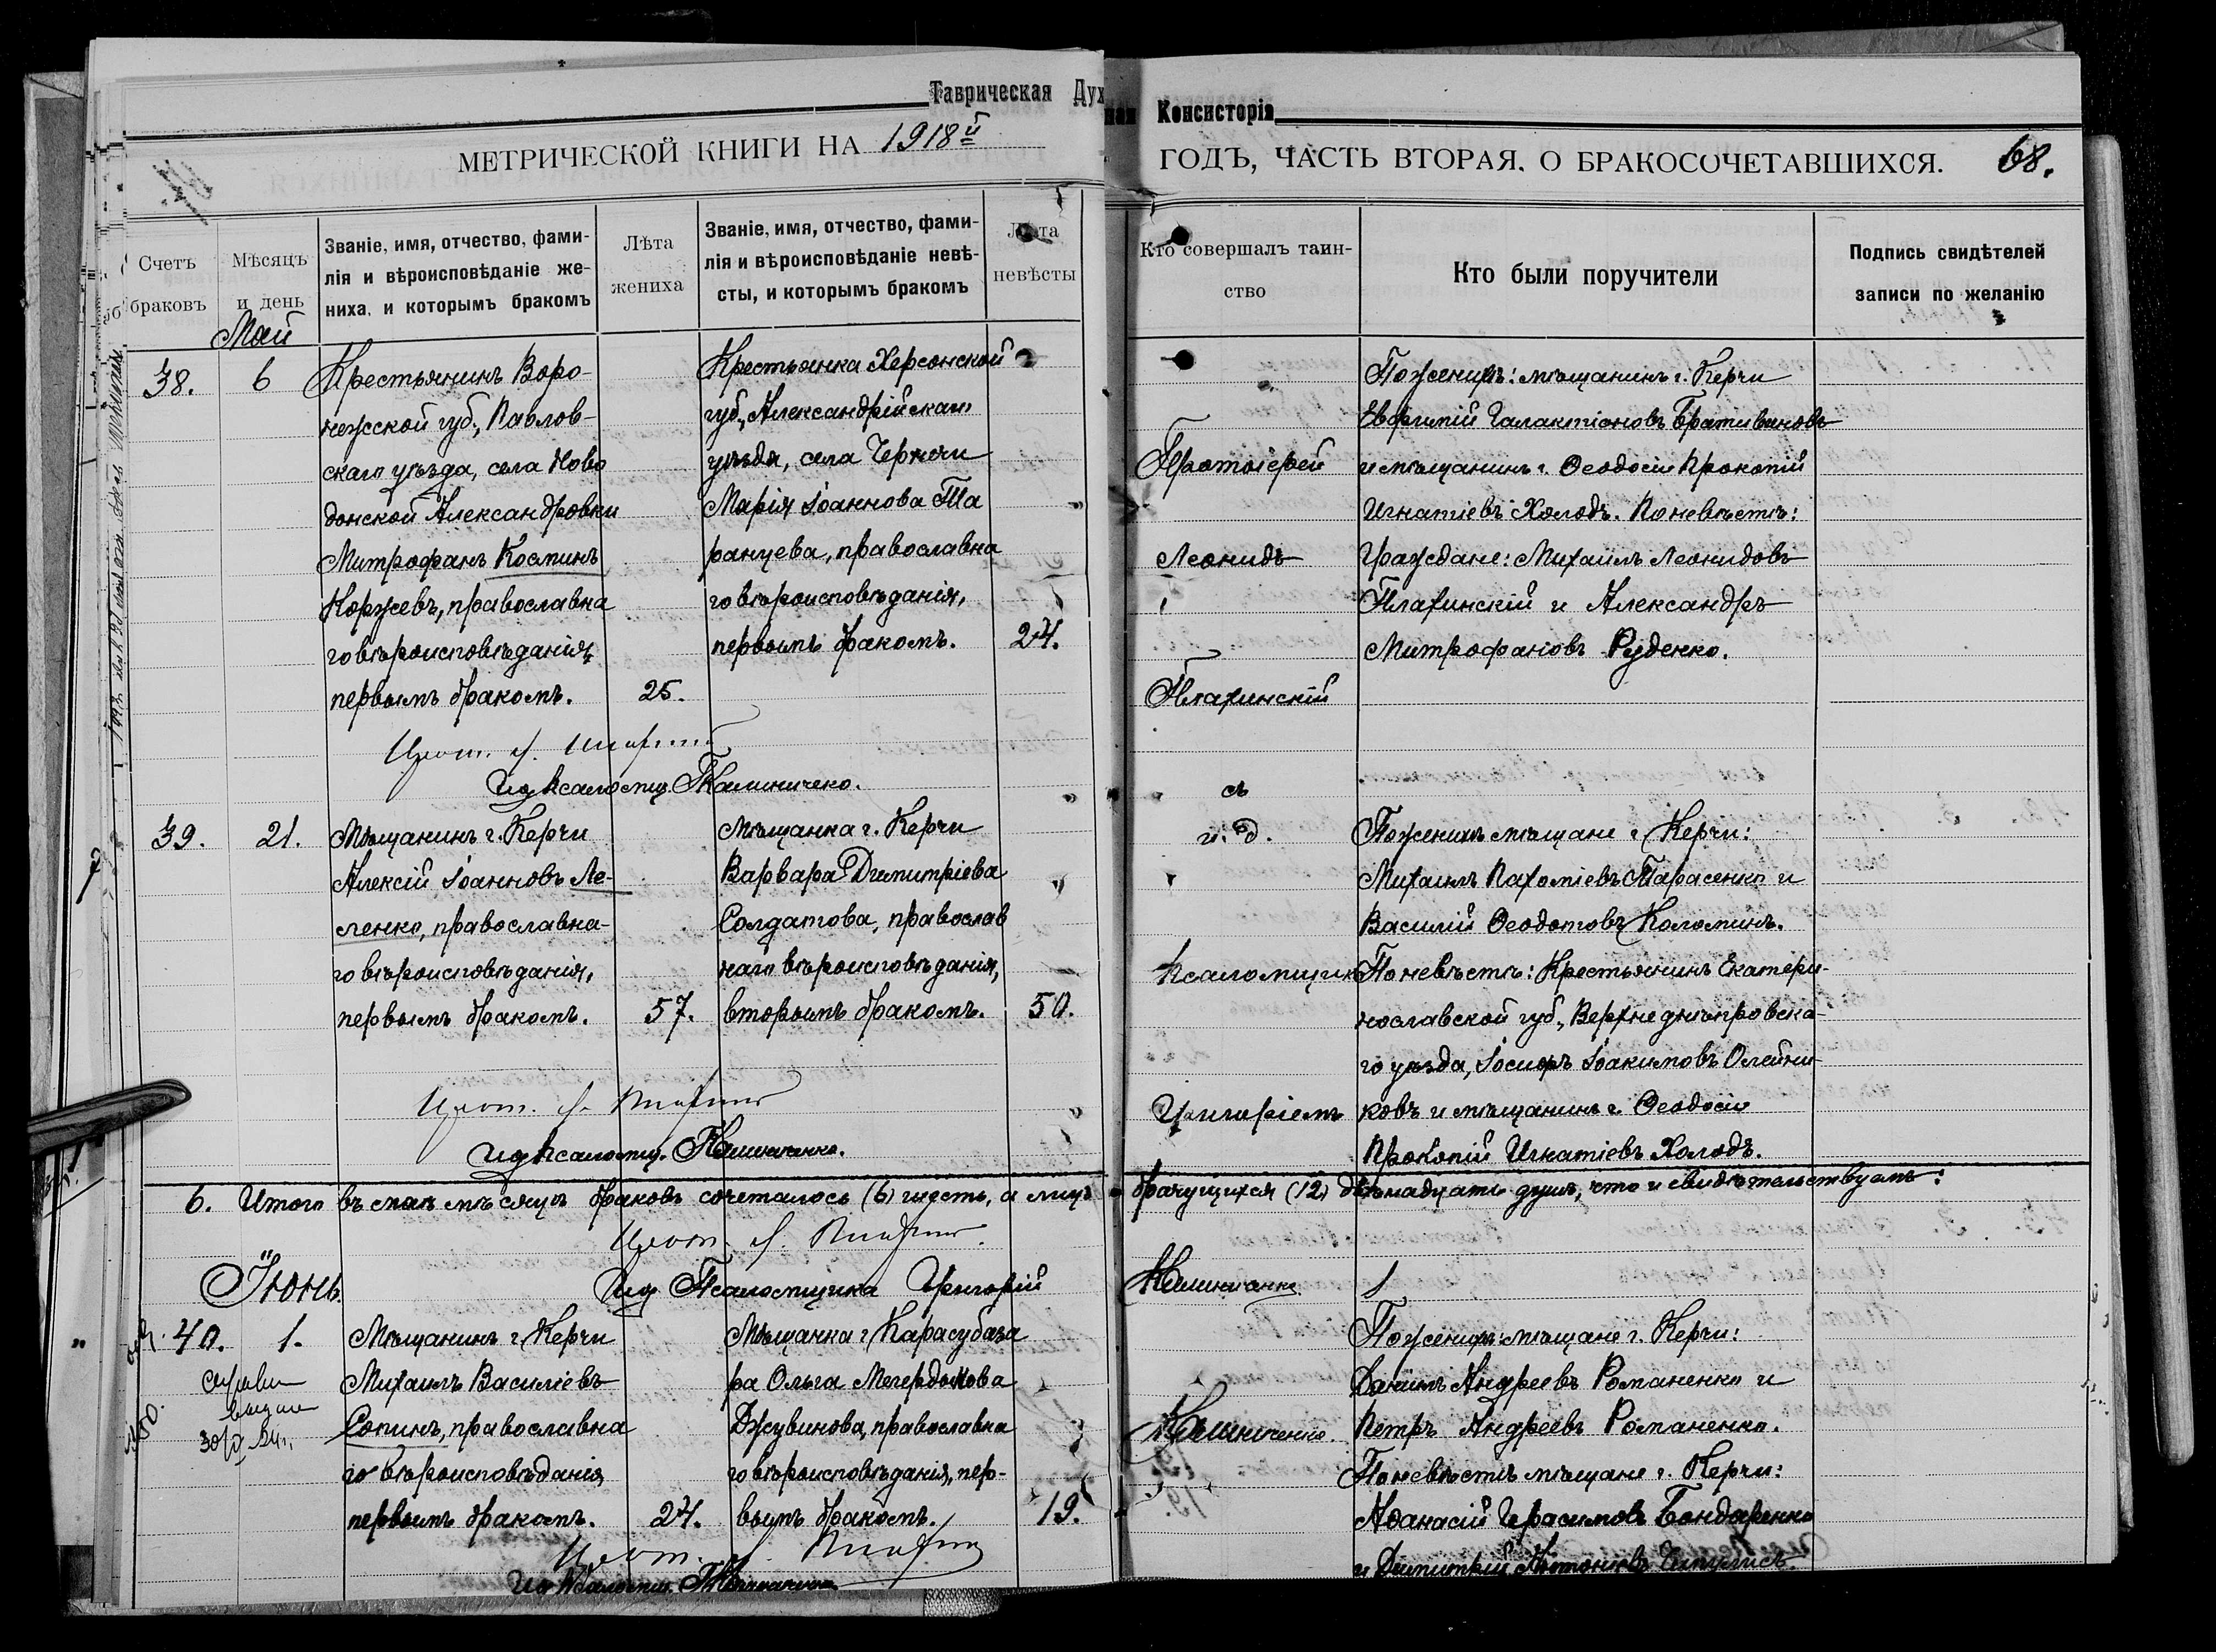 Таврическая Дух
ная Консисторія
МЕТРИЧЕСКОЙ КНИГИ НА 1918й
ГОДЪ, ЧАСТЬ ВТОРАЯ. О БРАКОСОЧЕТАВШИХСЯ. 68.
Счетъ браковъ
Мѣсяцъ и день
Званіе, имя, отчество, фами-
лія и вѣроисповѣданіе же-
ниха, и которымъ бракомъ
Лѣта
жениха
Званіе, имя, отчество, фами-
лія и вѣроисповѣданіе невѣ-
сты, и которымъ бракомъ
Лѣта
невѣсты
Кто совершалъ таин-
ство
Кто были поручители
Подпись свидѣтелей
записи по желанію
Май
38. 6
Крестьянинъ Воро-
нежской губ., Павлов-
скаго уѣзда, села Ново
донской Александровки
Митрофанъ Косминъ
Коржевъ, православна
го вѣроисповѣданія,
первымъ бракомъ. 25.
Крестьянка Херсонской
губ., Александрійскаго
уѣзда, села Чернечи
Марія Іоаннова Та
ранцева, православна
го вѣроисповѣданія,
первымъ бракомъ. 24.
Прот. Л.
Ид Псаломщ. Г Калиниченко.
Протоіерей
Леонидъ
Плахинскій
съ
и. д.
Псаломщик
Григоріемъ
Калиниченко.
По женихѣ: мѣщанинъ г. Керчи
Евфимій Галактіоновъ Бративановъ
и мѣщанинъ г. Ѳеодосіи Прокопій
Игнатіевъ Холодъ. По невѣстѣ:
Граждане: Михаилъ Леонидовъ
Плахинскій и Александръ
Митрофановъ Руденко.
39. 21.
Мѣщанинъ г. Керчи
Алексій Іоанновъ Ле-
ленко, православна-
го вѣроисповѣданія,
первымъ бракомъ. 57.
Мѣщанка г. Керчи
Варвара Димитріева
Солдатова, православ
наго вѣроисповѣданія,
вторымъ бракомъ. 50.
Прот. Л.
Ид Псаломщ. Г Калиниченко.
По женихѣ мѣщане г. Керчи:
Михаилъ Пахоміевъ Тарасенко и
Василій Ѳеодотовъ Коломинъ.
По невѣстѣ: Крестьянинъ Екатери-
нославской губ., Верхнеднѣпровска-
го уѣзда, Іосифъ Іоакимовъ Олейни-
ковъ и мѣщанинъ г. Ѳеодосіи
Прокопій Игнатіевъ Холодъ.
6. Итого въ маѣ мѣсяцѣ браковъ сочеталось (6) шесть, а лицъ брачущихся (12) двѣнадцать душъ, что и свидѣтельствуемъ:
Прот. Л.
Ид Псаломщика Григорій Калиниченко
Іюнь.
40. 1.
Мѣщанинъ г. Керчи
Михаилъ Василіевъ
Сопинъ, православна
го вѣроисповѣданія
первымъ бракомъ. 24.
Мѣщанка г. Карасубаза
ра Ольга Мегердокова
Джувинова, православна
го вѣроисповѣданія, пер-
вымъ бракомъ. 19.
Прот. Л.
Ид Псаломщ. Г Калиниченко
По женихѣ: мѣщане г. Керчи:
Даніилъ Андреевъ Романенко и
Петръ Андреевъ Романенко.
По невѣстѣ мѣщане г. Керчи:
Аѳанасій Герасимовъ Бондаренко
и Димитрій Антоніевъ